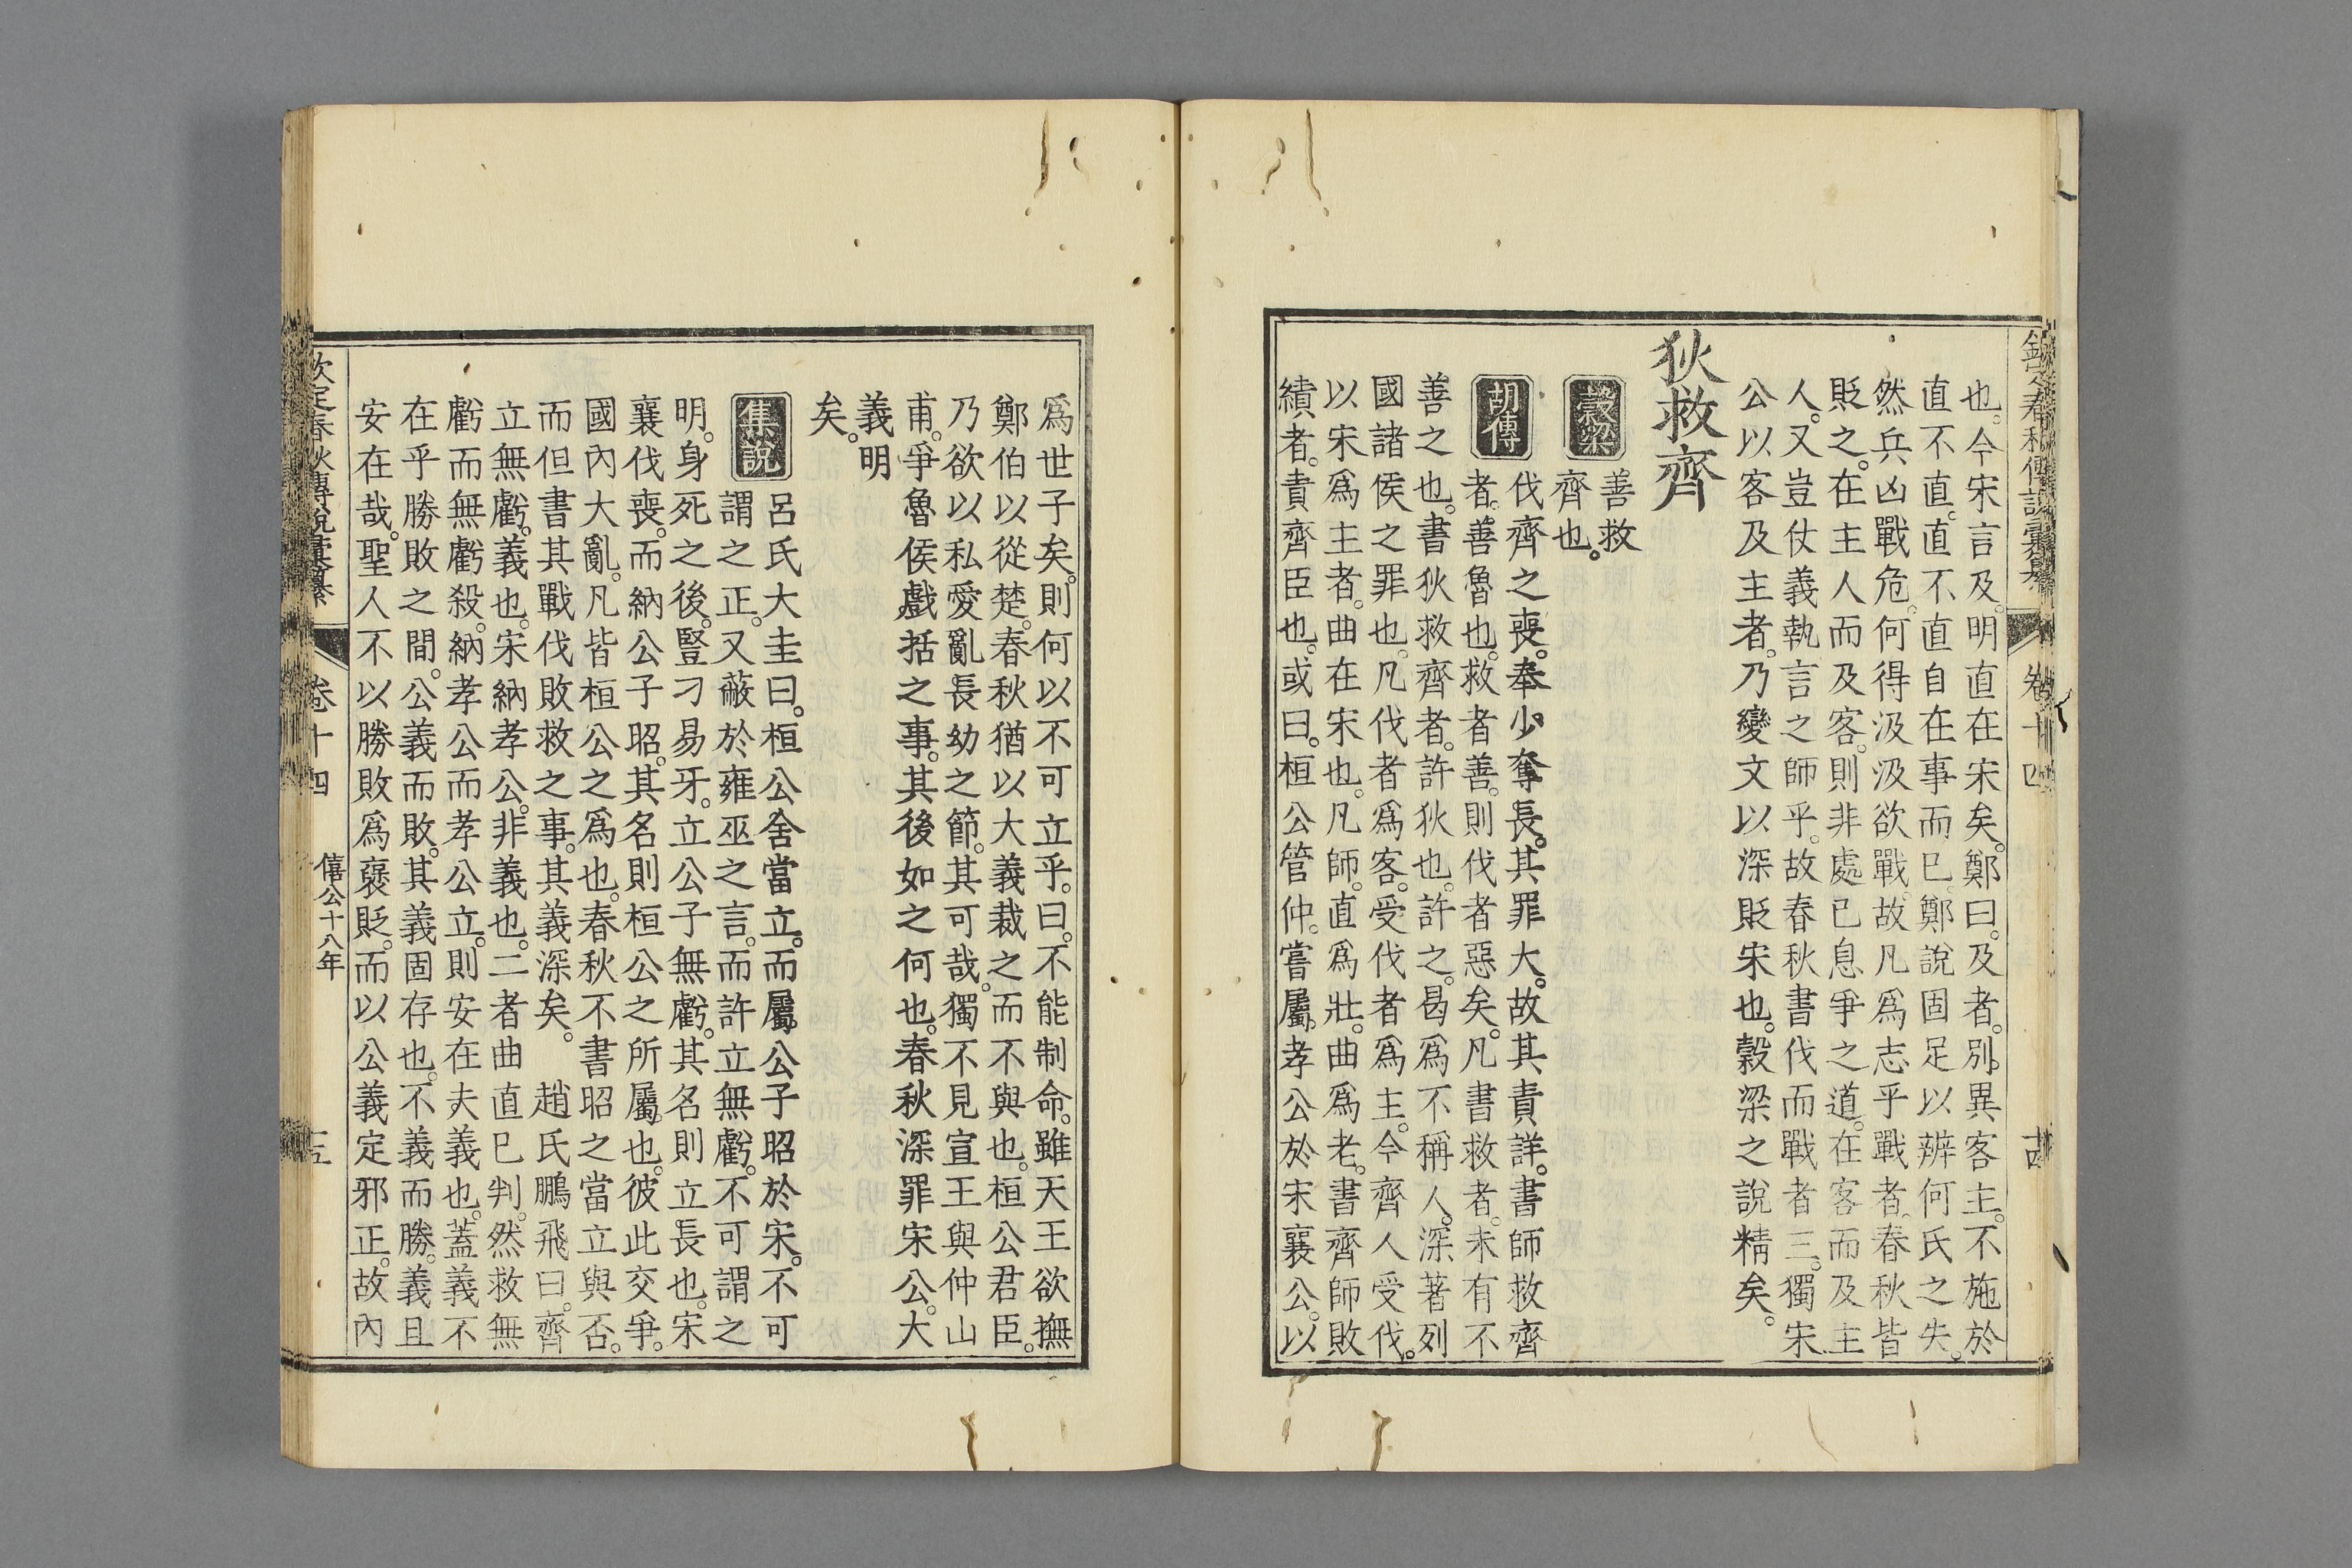 也。今宋言及。明直在宋矣。鄭曰。及者。別異客主。不施於
直不直。直不直自在事而已。鄭說固足以辨何氏之失。
然兵凶戰危。何得汲汲欲戰。故凡爲志乎戰者。春秋皆
貶之。在主人而及客。則非處已息爭之道。在客而及主
人。又豈仗義執言之師乎。故春秋書伐而戰者三。獨宋
公以客及主者。乃變文以深貶宋也。穀梁之說精矣。
狄救齊
穀梁
善救
齊也。
胡傳
伐齊之喪。奉少奪長。其罪大。故其責詳。書師救齊
者。善魯也。救者善。則伐者惡矣。凡書救者。未有不
善之也。書狄救齊者。許狄也。許之。曷爲不稱人。深著列
國諸侯之罪也。凡伐者爲客。受伐者爲主。今齊人受伐。
以宋爲主者。曲在宋也。凡師。直爲壯。曲爲老。書齊師敗
績者。責齊臣也。或曰。桓公管仲。嘗屬孝公於宋襄公。以
卷十四
十四
爲世子矣。則何以不可立乎。曰。不能制命。雖天王欲撫
鄭伯以從楚。春秋猶以大義裁之而不與也。桓公君臣。
乃欲以私愛亂長幼之節。其可哉。獨不見宣王與仲山
甫。爭魯侯戲括之事。其後如之何也。春秋深罪宋公。大
義明
矣。
集說
呂氏大圭曰。桓公舍當立。而屬公子昭於宋。不可
謂之正。又蔽於雍巫之言。而許立無虧。不可謂之
明。身死之後。豎刁易牙。立公子無虧。其名則立長也。宋
襄伐喪。而納公子昭。其名則桓公之所屬也。彼此交爭。
國內大亂。凡皆桓公之爲也。春秋不書昭之當立與否。
而但書其戰伐敗救之事。其義深矣。 趙氏鵬飛曰。齊
立無虧。義也。宋納孝公。非義也。二者曲直已判。然救無
虧而無虧殺。納孝公而孝公立。則安在夫義也。蓋義不
在乎勝敗之間。公義而敗。其義固存也。不義而勝。義且
安在哉。聖人不以勝敗爲褒貶。而以公義定邪正。故內
欽定春秋傳說彙纂
卷十四
僖公十八年
十五